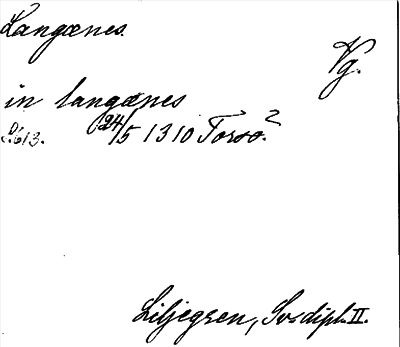 Langœnes.
Vg.
in langœnes
s. 613. (24/5 1310 Torsö.2
Liljegren, Sv. dipl. II.